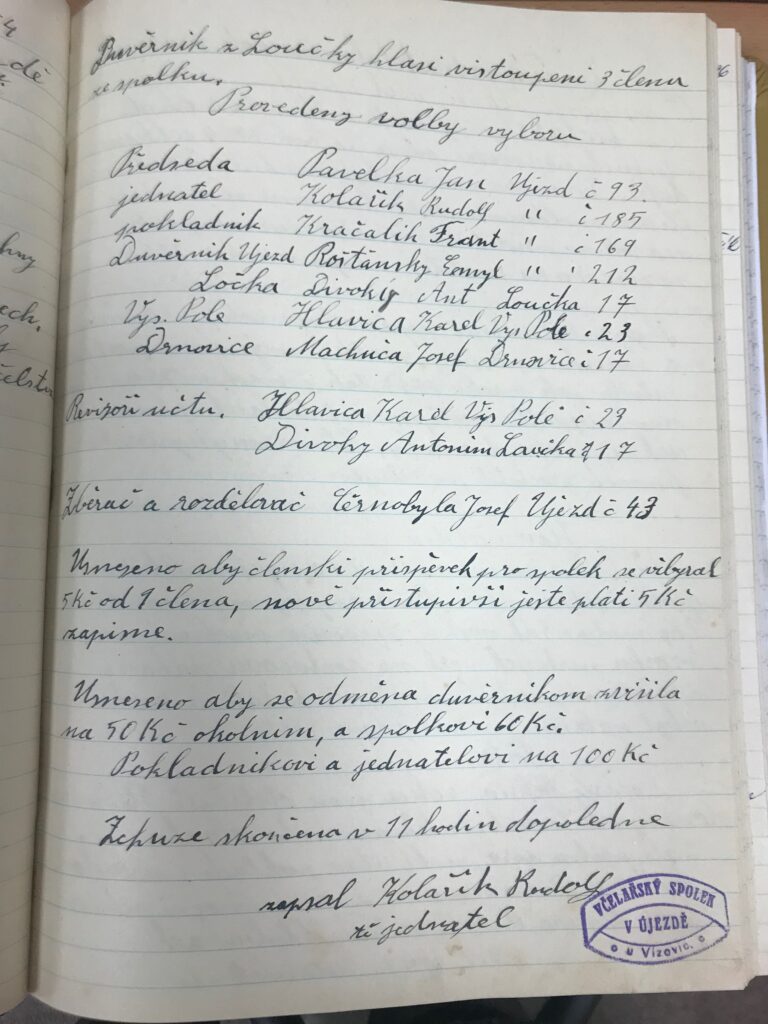 Duvěrnik z Loučky hlasi vistoupeni 3 členu
ze spolku.
Provedeny volby vyboru
Předseda Pavelka Jan Ujezd č 93.
jednatel Kolařik Rudolf " č 185
pokladnik Kračalik Frant " č 169
Duvěrnik Ujezd Rošťánsky Eemyl " ' 212
Ločka Divoky Ant Loučka 17
Vys. Pole Hlavica Karel Vys Pole č 23
Drnovice Machuča Josef Drnovice č 17
Revizoři učtu. Hlavica Karel Vys Pole č 23
Divoky Antonim 17
Zběrač a rozdělovač Čěrnobyla Josef Ujezd č 43
Umeseno aby členski přispěvek pro spolek se vibyral
5 Kč od 1 člena, nově přistupivši ješte plati 5 Kč
zapisne.
Umeseno aby se odměna duvěrnikom zvišila
na 50 Kč okolnim, a spolkovi 60 Kč.
Pokladnikovi a jednatelovi na 100 Kč
skončena v 11 hodin dopoledne
zapsal Kolařik Rudolf
jednatel
VČELAŘSKÝ SPOLEK
V ÚJEZDĚ
u Vizovic.